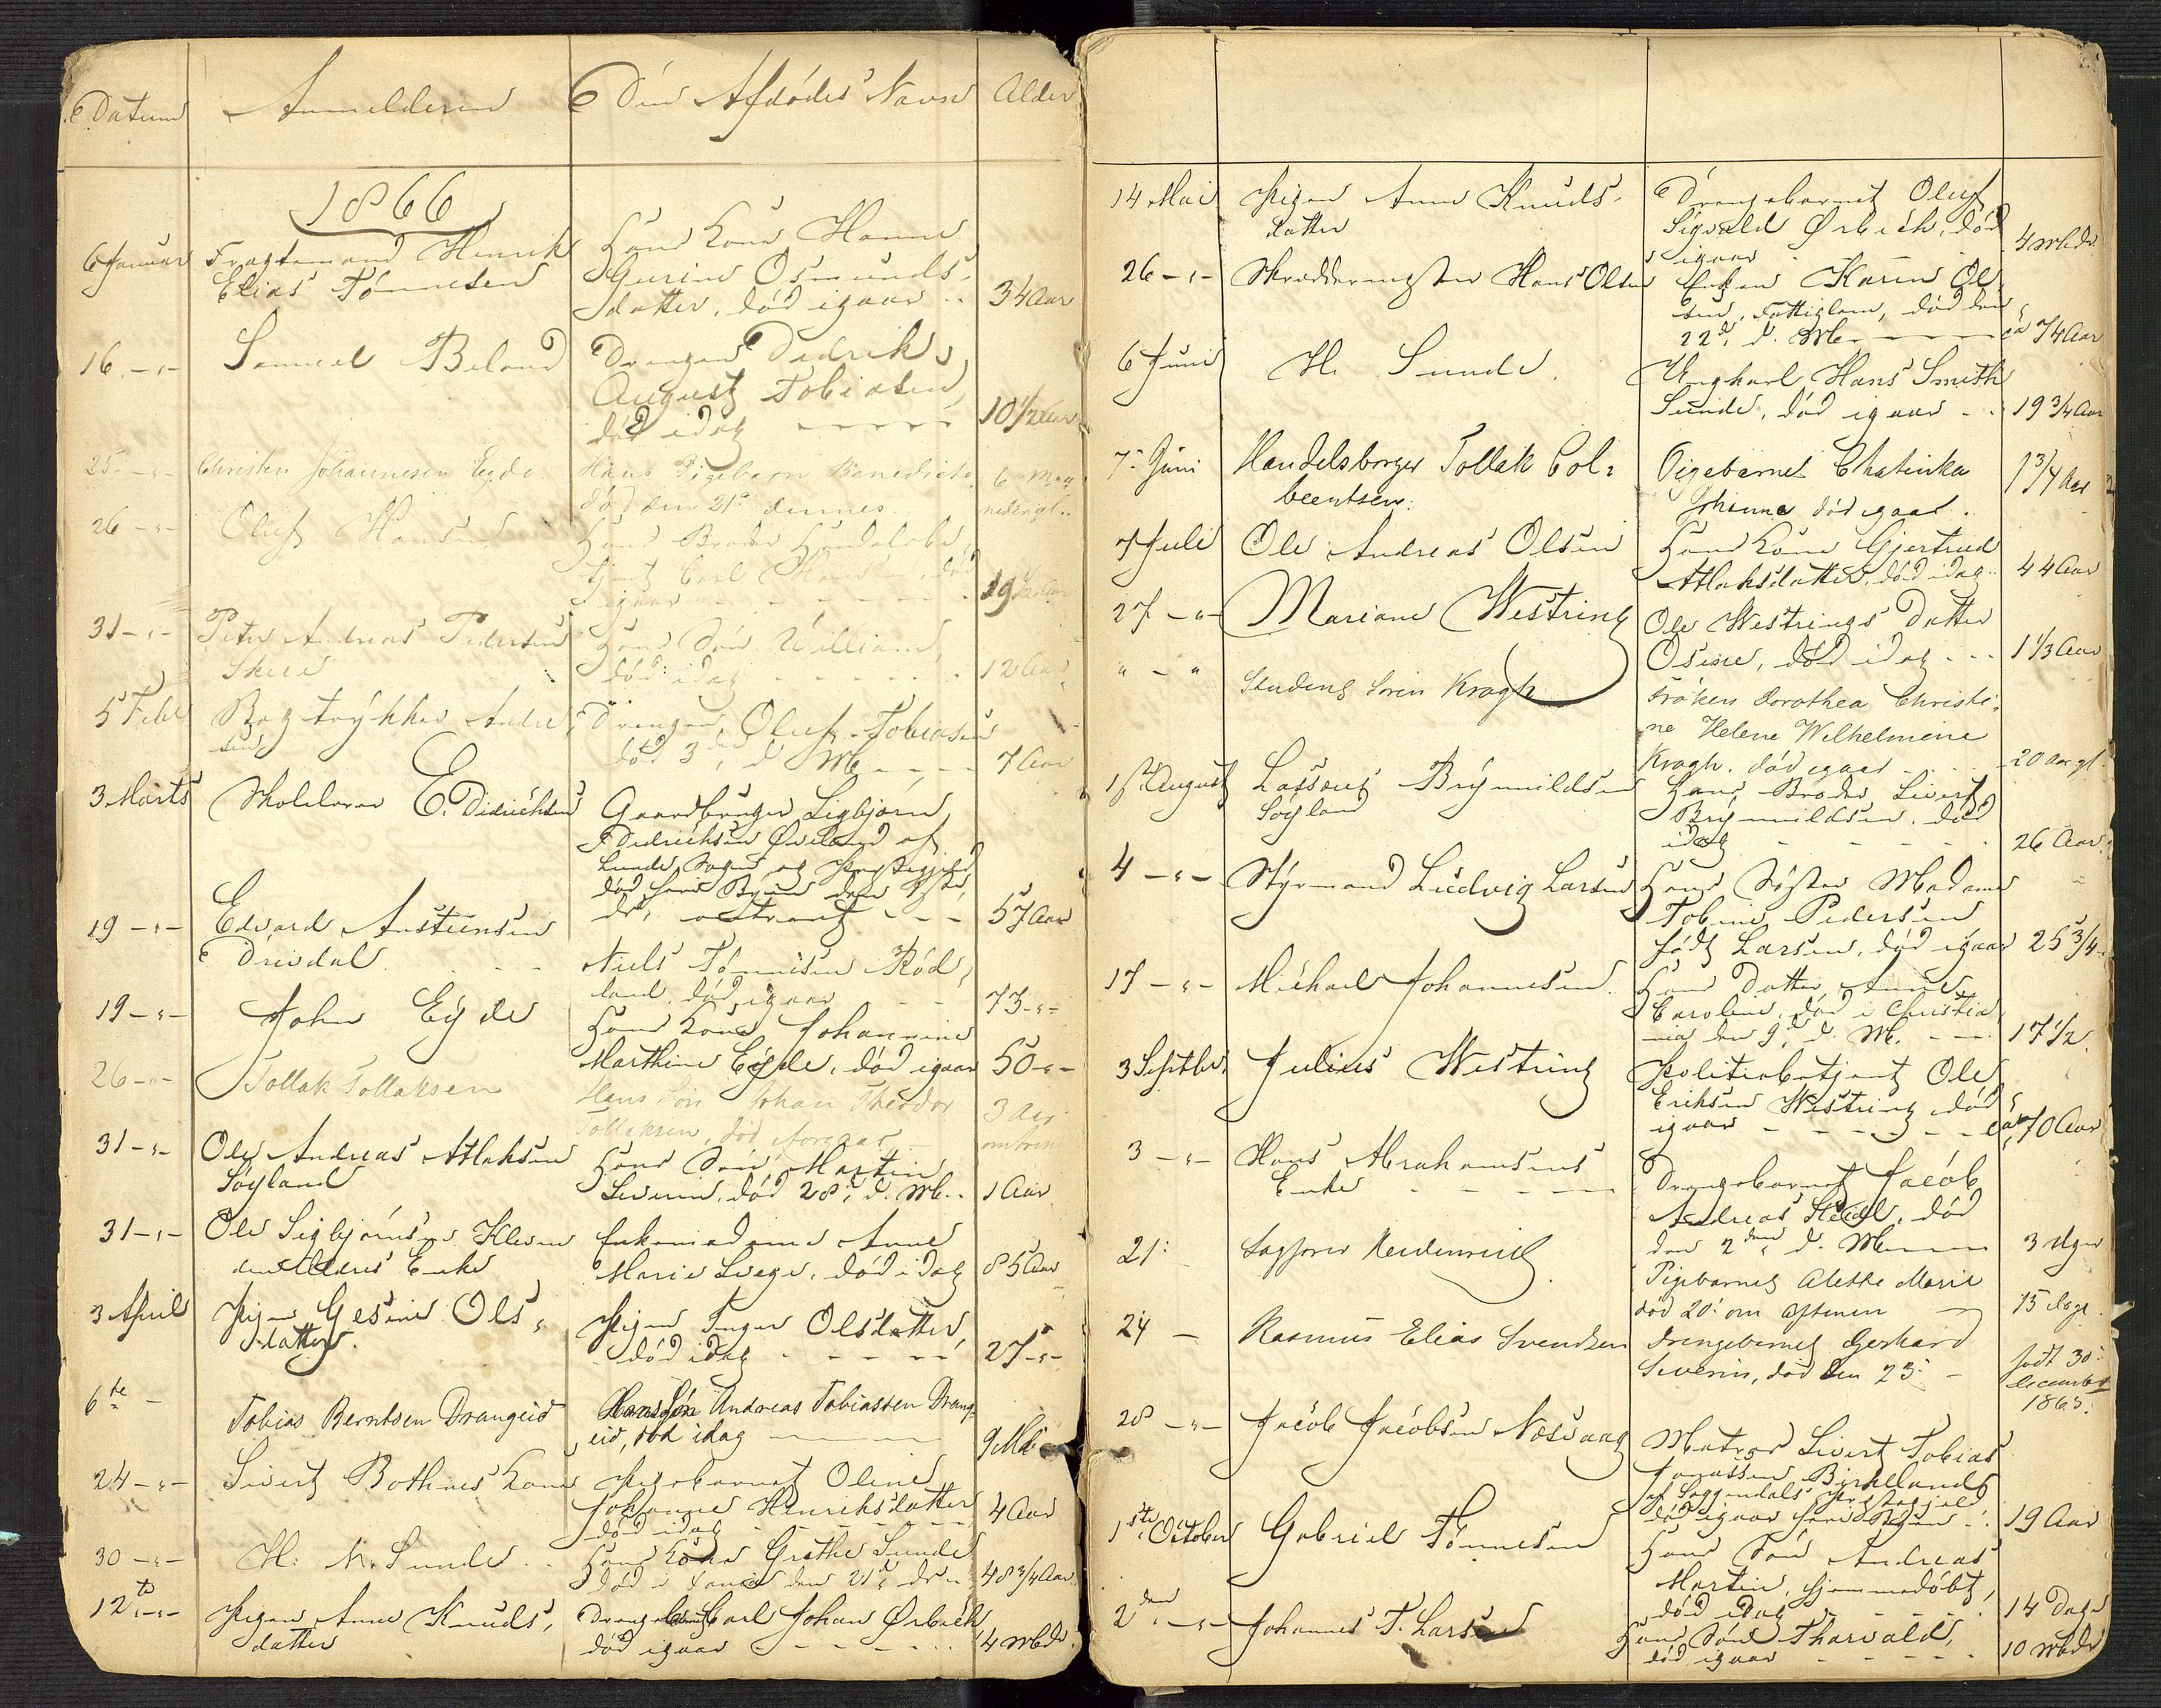 Datum Anmelderen Den Afdødes Navn Alder
1866
6 Januar Fragtemand Henrik Hans Kone Hanne
Elias Tønnesen Gurine Osmunds-
datter, død igaar .. 34 Aar
16 -"- Samuel Beland Drengen Didrik
August Tobiasen,
død idag ----- 10 1/2 Aar
25 -"- Christen Johannesen Eyde Hans Pigebarn Benedicte 6 Maa
død den 21de dennes neder gl..
26 -"- Oluf Hansen Hans Broder Handelsbe,
tjent Carl Hansen, død
igaar - - - - - 19 1/2 Aar
31 -"- Peter Andreas Pedersen Hans Søn William,
Skeie død idag - - - - - 12 Aar
5 Febr Bogtrykker Andre, Drengen Oluf Tobiasen
sen død 3die d. M. - - - 7 Aar
3 Marts Skolelærer E. Didrichsen Gaardbruger Sigbjørn
Didrichsen Øveland af
Lunde Sogn og Præstegjeld
død paa Byen den
ds, ---- 57 Aar
19 -"- Edvard Austensen
Drivdal. - - - Niels Tønnesen Rød,
land, død igaar - - 73 -"-
19 -"- John Eyde Hans Kone Johannine
Marthine Eyde, død igaar 50 -"-
26 -"- Tollak Tollaksen Hans Søn Johan Theodor 3 Aar
Tollaksen, død forgaar omtrent
31 -"- Ole Andreas Atlaksen Hans Søn Martin
Søyland Severin, død 28de d. M.. 1 Aar
31 -"- Ole Sigbjørnsen Kleven Enkemadame Anne
den Ældres Enke Marie Svege, død idag 85 Aar
3 April Pigen Gesine Ols, Pigen Inger Olsdatter,
datter. død idag - - - - - 27 -"-
6te - Tobias Berntsen Drangeid Hans Søn Andreas Tobiassen Drang-
eid, død idag ---- 9 Md
24 -"- Sivert Bothnes Kone Pigebarnet Oline
Johanne Henriksdatter
død idag - - - - - 4 Aar
30 -"- H. M. Sunde .. Hans Kone Grethe Sunde
død i den 21de ds .. 48 3/4 Aar
12te -"- Pigen Anne Knuds, Drengebarnet Carl Johan Ørbech
datter død igaar - - - - - 4 Mdr.
14 Mai Pigen Anne Knuds- Drengebarnet Oluf
datter Sigvald Ørbech, død
igaar - - 4 Mdr
26 -"- Skræddermester Hans Olsen Enken Karen Ol,
sen, Fattiglem, død den
22de d. M. ---- ca 74 Aar
6 Juni H. Sunde. Ungkarl Hans Smith
Sunde, død igaar - .. 19 3/4 Aar
7 Juni Handelsborger Tollak Col- Pigebarnet Chatinka 1 3/4 Aar
beentsen. Johanne død igaar .
7 Juli Ole Andreas Olsen Hans Kone Gjertrud
Atlaksdatter, død idag .. 44 Aar
27 -"- Mariane Westring Ole Westrings Datter
Osine, død idag - - - 1 1/3 Aar
" - " Student Søren Kragh Frøken Dorothea Christi-
ne Helene Wilhelmine
Kragh. død igaar 20 Aar gl.
1ste August Lassent Brynnildsen Hans Broder Sivert
Søyland Brynnildsen, død
idag - - - - - 26 Aar.
4 -"- Styrmand Ludvig Larsen Hans Søster Madame
Tobine Pedersen
født Larsen, død igaar 25 3/4 -
17 -"- Michael Johannesen. Hans Datter Anne
Caroline, død i Christia
nia den 9de d. M. - - - 17 1/2
3 Septbr. Julius Westring Politiebetjent Ole
Eriksen Westring død
igaar - - - - - - ca 70 Aar
3 -"- Hans Abrahamsens Drengebarnet Jacob
Enke - - - - Andreas , død
den 2den d. M. ---- 3 Uger
21: Sagfører Heidenreich. Pigebarnet Alethe Marie
død 20: om Aftenen 15 Dage.
24 - Rasmus Elias Svendsen Drengebarnet Gerhard født 30:
Severin, død den 23: - December
1865.
28 -"- Jacob Jacobsen Næsvaag Matros Sivert Tobias
Jonassen Birkelands
af Soggendals Præstegjeld
død igaar paa Byen .. 19 Aar
1ste October Gabriel Tønnesen Hans Søn Andreas
Martin, hjemmedøbt,
død idag - - - - - 14 Dage
2den -"- Johannes T. Larsen Hans Søn Tharvald,
død igaar - - - - - 10 Mdr